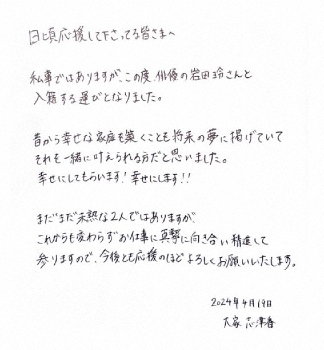 日頃応援して下さってる皆さまへ
私事ではありますが、この度、俳優の岩田玲さんと
入籍する運びとなりました。
昔から幸せな家庭も築くことも将来の夢に掲げていて
それも一緒に叶えられる方だと思いました。
幸せにしてもらいます！幸せにします！！
まだまだ未熟な2人ではありますが、
これからも変わらずお仕事に真摯に向き合い精進して
参りますので、今後とも応援のほどよろしくお願いいたします。
2024年4月19日
大家 志津香